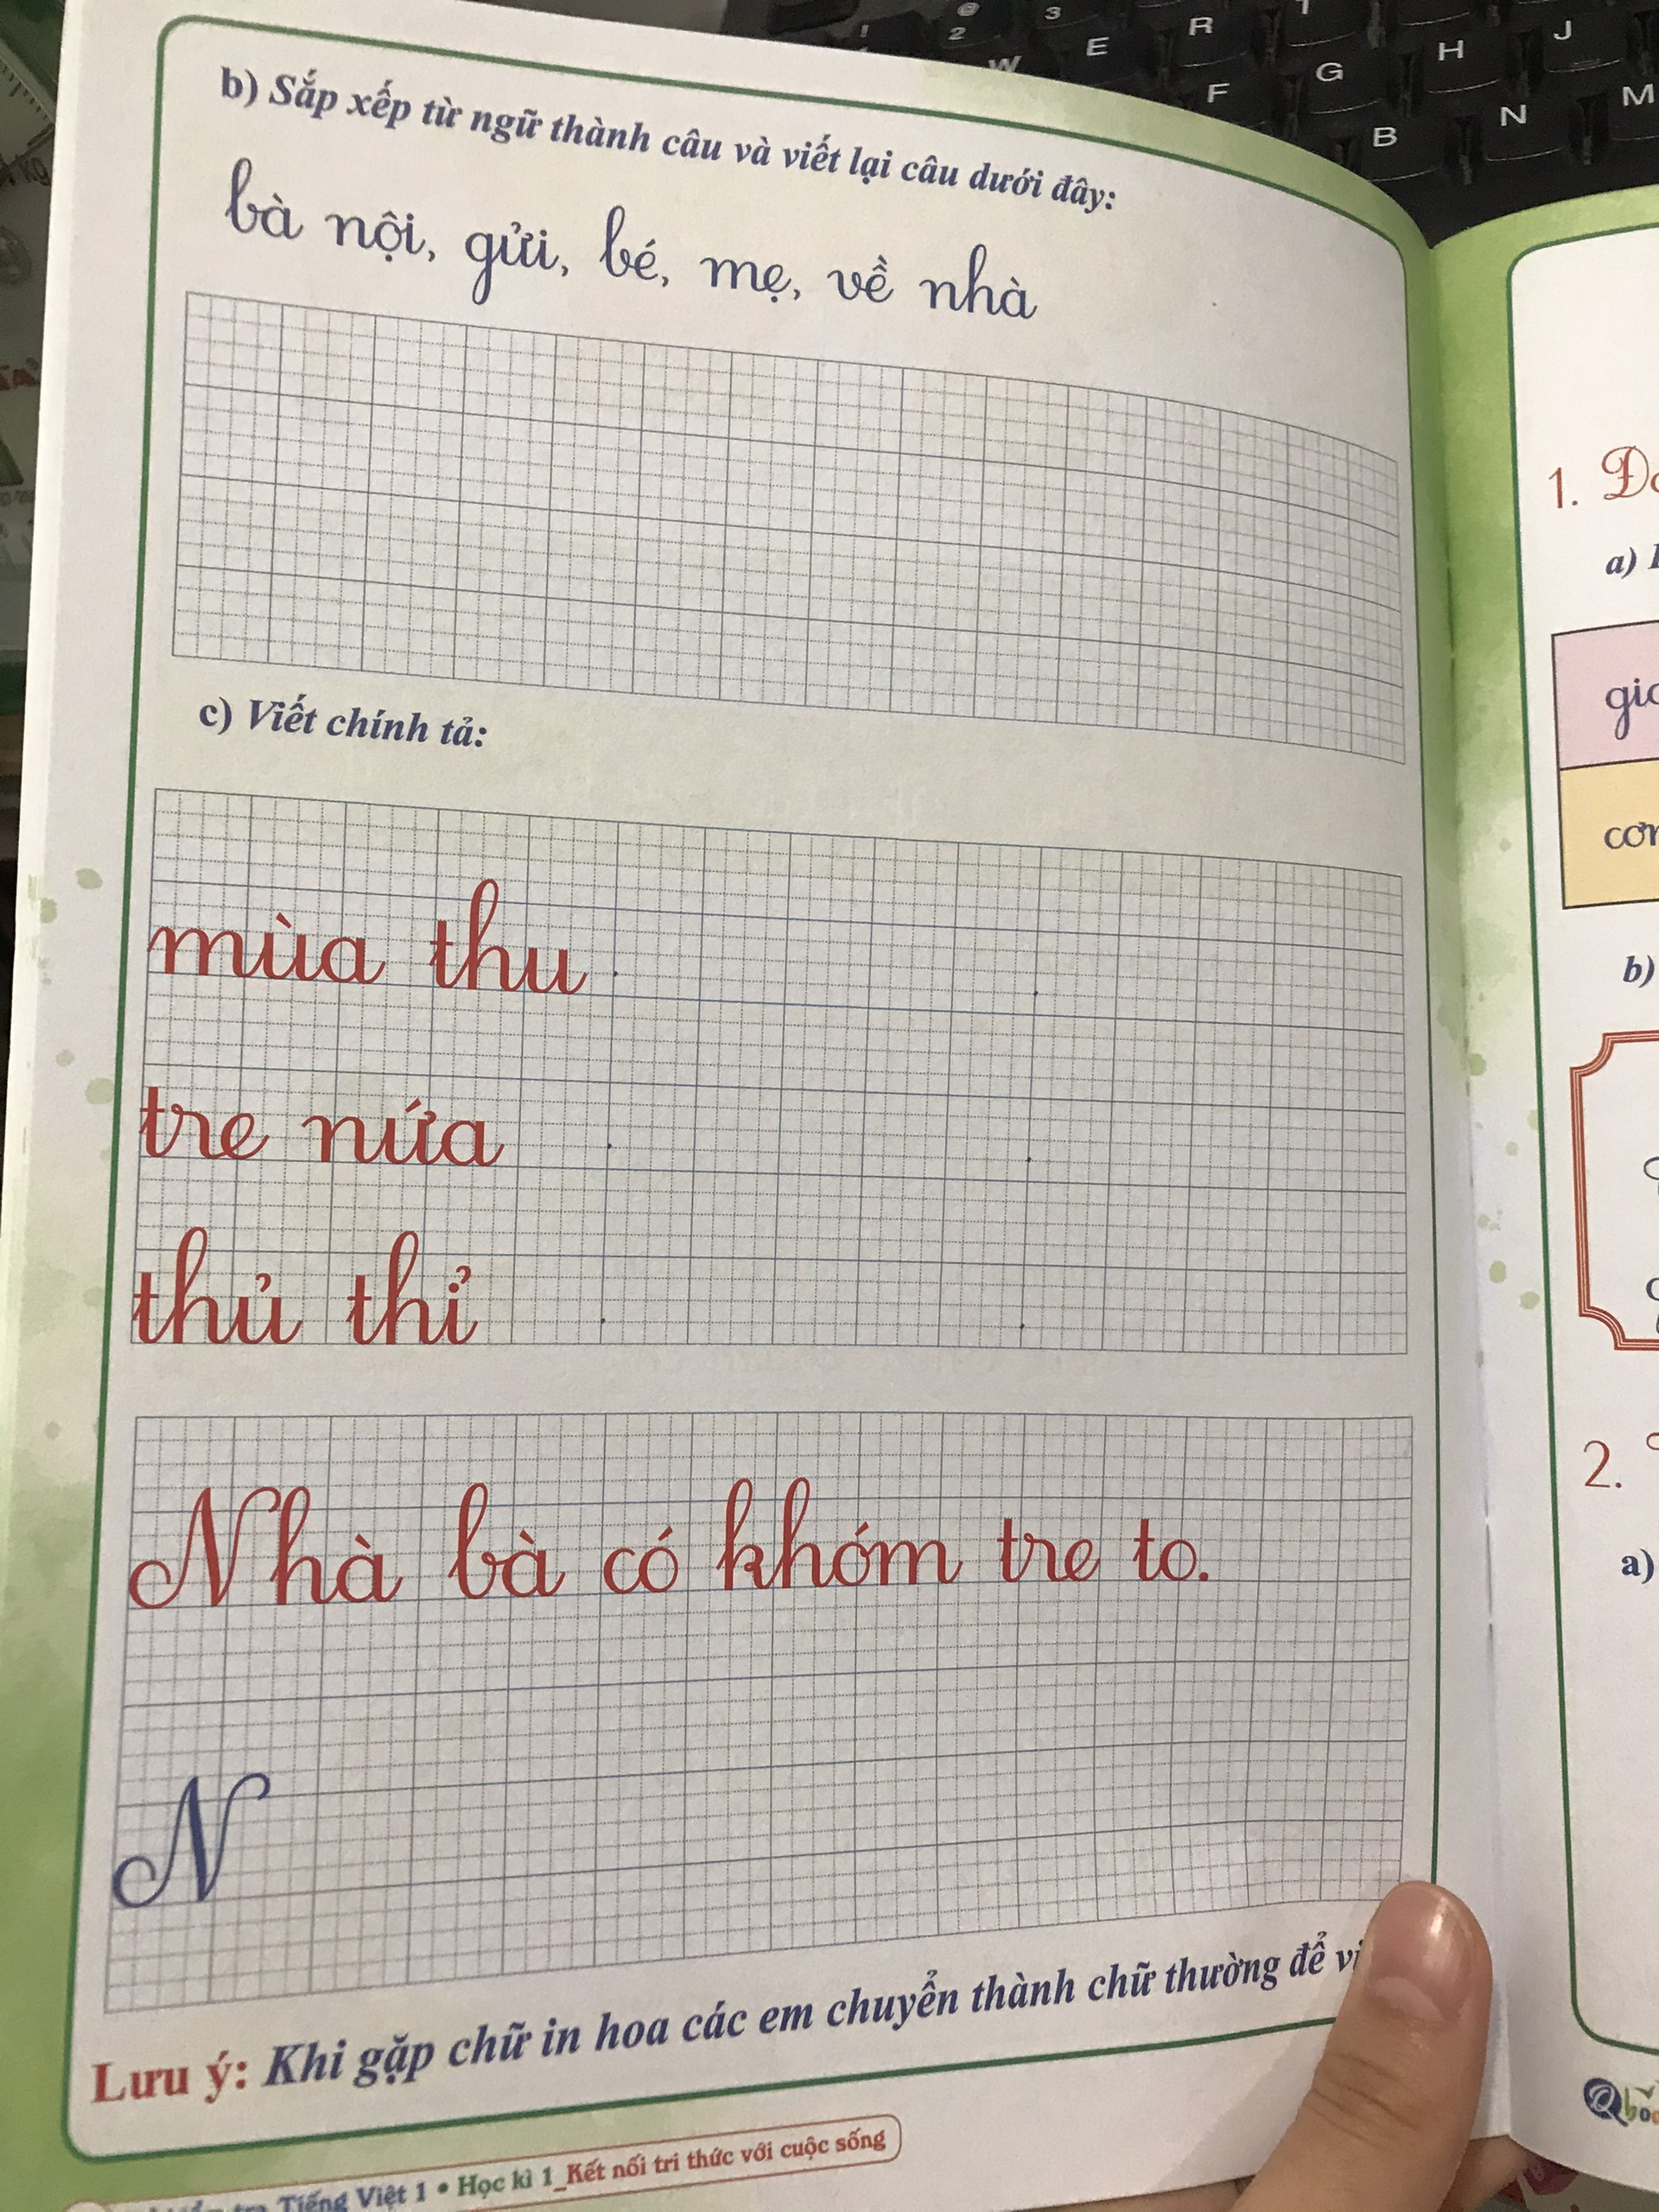 b) Sắp xếp từ ngữ thành câu và viết lại câu dưới đây:
bà nội, gửi, bé, mẹ, về nhà
c) Viết chính tả:
mùa thu
tre nứa
thủ thỉ
Nhà bà có khóm tre to.
N
Lưu ý: Khi gặp chữ in hoa các em chuyển thành chữ thường để
Tiếng Việt 1 • Học kì 1_Kết nối tri thức với cuộc sống
1.
a)
b)
2.
a)
@ 3
! 2
W E R
F G H J
B N M